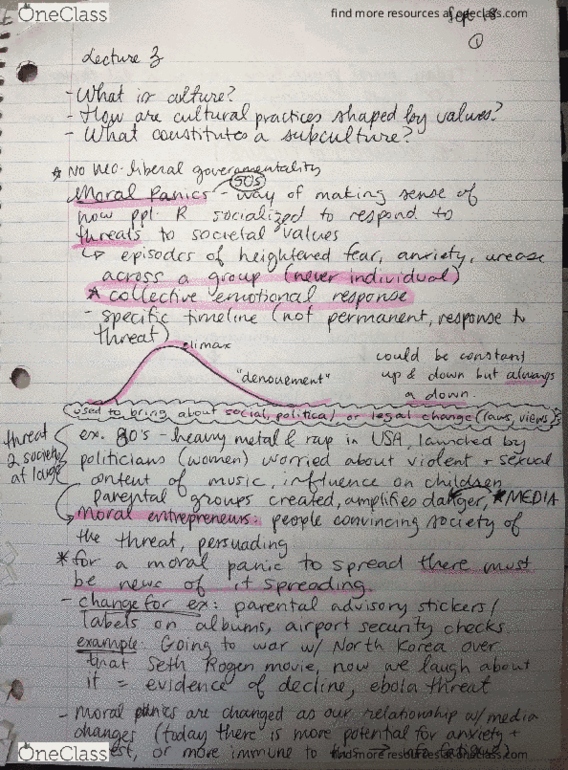 OneClass
find more resources at oneclass.com
Sept 18
①
Lecture 3
- What is culture?
- How are cultural practices shaped by values?
- What constitutes a subculture?
* No neo-liberal governmentality
50s
Moral Panics - way of making sense of
how ppl. R socialized to respond to
threats to societal values
↳ episodes of heightened fear, anxiety, unease
across a group (never individual)
* collective emotional response
- specific timeline (not permanent, response to
threat)
climax
"denouement"
could be constant
up & down but always
a down
used to bring about social, political or legal change (laws, views)
threat
2 society
at large
ex. 80's - heavy metal & rap in USA, launched by
politicians (women) worried about violent + sexual
content of music, influence on children
Parental groups created, amplifies danger, *MEDIA
→ moral entrepreneurs: people convincing society of
the threat, persuading
* for a moral panic to spread there must
be news of it spreading.
- change for ex: parental advisory stickers/
labels on albums, airport security checks
example: Going to war w/ North Korea over
that Seth Rogen movie, now we laugh about
it = evidence of decline, ebola threat
- Moral panics are changed as our relationship w/ media
changes (today there is more potential for anxiety +
or more immune to this → info fatigue)
OneClass
find more resources at oneclass.com